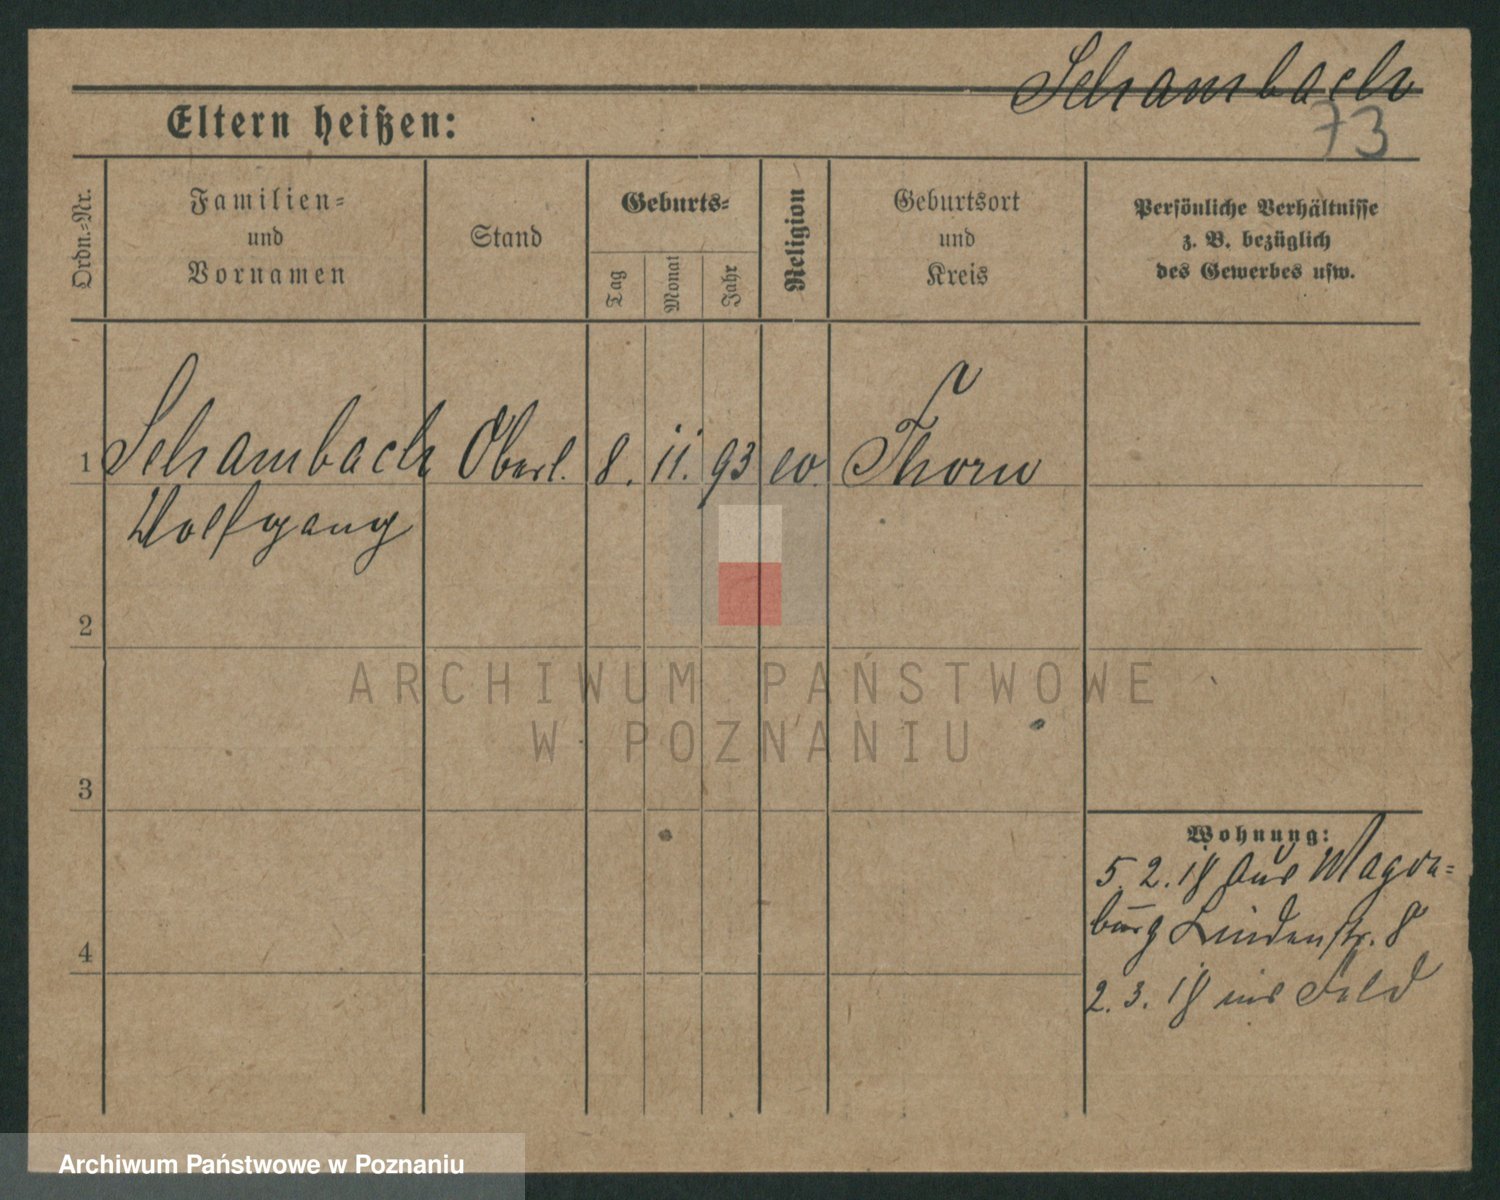 Schambach
73
Eltern heißen:
Ordn.-Nr.
Familien-
und
Vornamen
Stand
Geburts-
Tag
Monat
Jahr
Religion
Geburtsort
und
Kreis
Persönliche Verhältnisse
z. B. bezüglich
des Gewerbes usw.
1 Schambach Oberl. 8. 11. 93 ev. Thorn
Wolfgang
2
ARCHIWUM PAŃSTWOWE
W POZNANIU
3
Wohnung:
5.2.18 aus Magde-
burg Lindenstr. 8
4
2.3.18 ins Feld
Archiwum Państwowe w Poznaniu